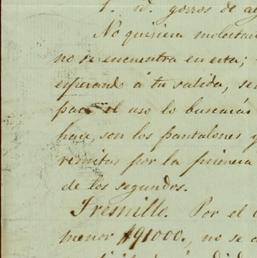 1. id. gorros de a
No quisiera molestar
no se encuentra en esta;
esperando á tu salida, se
para el uso lo buscarás
hace, son los pantalones y
remitas por la primera
de los segundos.
Tremille. Por el
menor $91000., no se